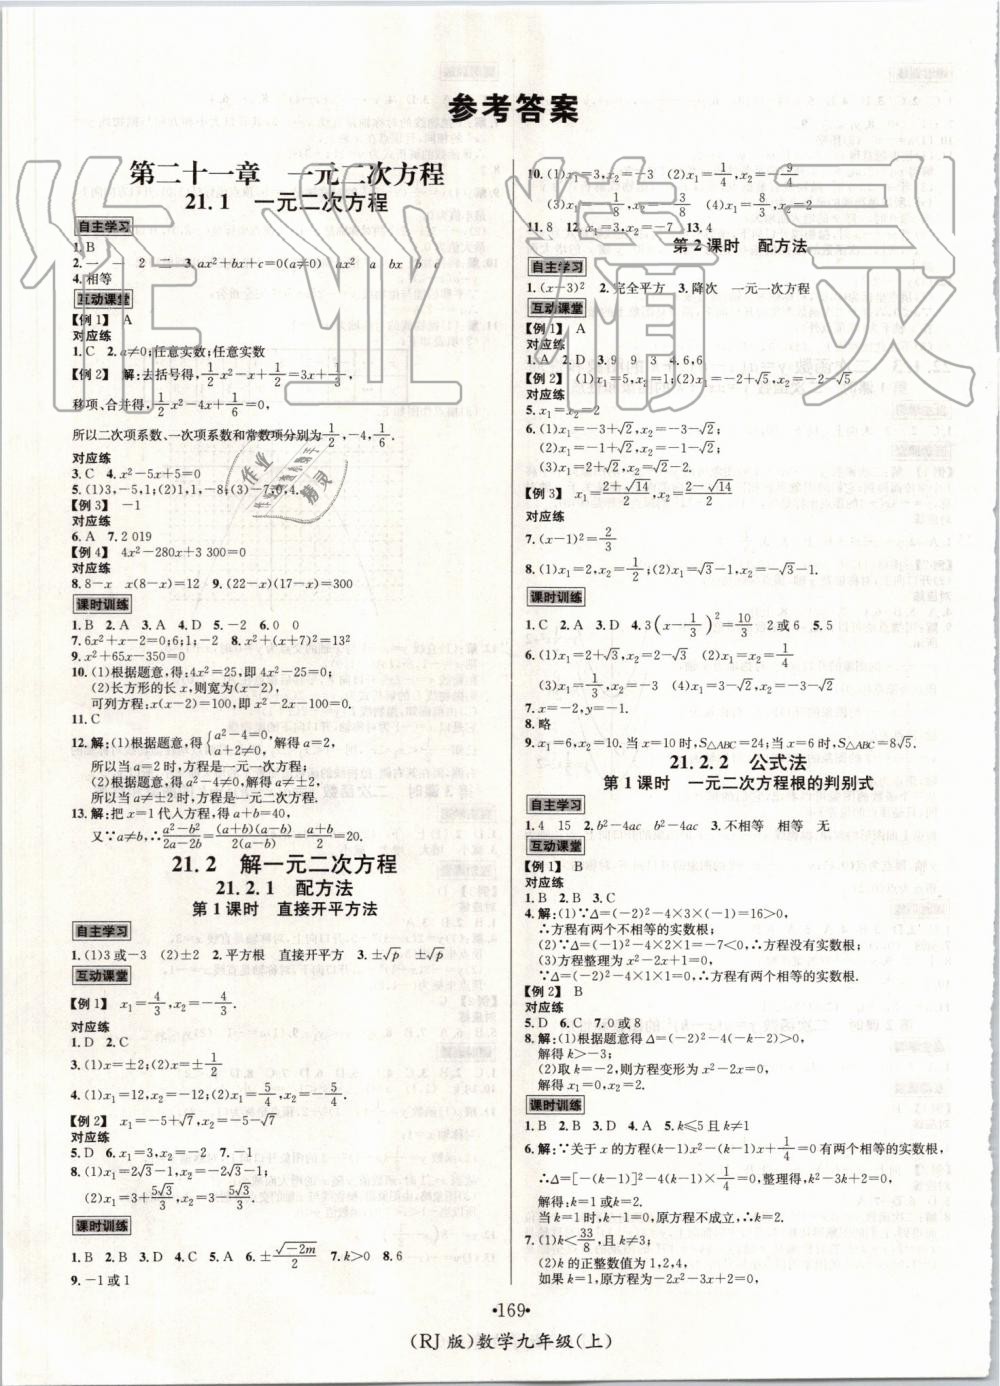 参考答案
第二十一章 一元二次方程
21.1 一元二次方程
自主学习
1.B
2.一 一 2 二 3.ax²+bx+c=0(a≠0) ax² a bx b c
4.相等
互动课堂
【例1】 A
对应练
1.C 2.a≠0;任意实数;任意实数
【例2】 解:去括号得,1/2x²-x=3x+1/3,
移项、合并得,1/2x²-4x+1/6=0,
所以二次项系数、一次项系数和常数项分别为1/2,-4,1/6.
对应练
3.C 4.x²-5x+5=0
5.(1)3,-5,1;(2)1,1,-8;(3)-7,0,4.
【例3】 -1
对应练
6.A 7.2 019
【例4】 4x²-280x+3 300=0
对应练
8.8-x x(8-x)=12 9.(22-x)(17-x)=300
课时训练
1.B 2.A 3.A 4.D 5.-2 6.0
7.6x²+x-2=0;6;1;-2 8.x²+(x+7)²=13²
9.x²+65x-350=0
10.(1)根据题意,得:4x²=25,即4x²-25=0;
(2)长方形的长x,则宽为(x-2),
可列方程:x(x-2)=100,即x²-2x-100=0.
11.C
12.解:(1)根据题意,得{a²-4=0, a+2≠0,解得a=2,
所以当a=2时,方程是一元一次方程;
(2)根据题意,得a²-4≠0,解得a≠±2,
所以当a≠±2时,方程是一元二次方程.
13.解:把x=1代入方程,得a+b=40,
又∵a≠b,∴(a²-b²)/(2a-2b)=(a+b)(a-b)/2(a-b)=(a+b)/2=20.
21.2 解一元二次方程
21.2.1 配方法
第1课时 直接开平方法
自主学习
1.(1)3或-3 (2)±2 2.平方根 直接开平方 3.±√p ±√p
互动课堂
【例1】 x₁=4/3,x₂=-4/3.
对应练
1.D 2.C
3.(1)x=±2;(2)x=±1/2
4.(1)x₁=12,x₂=-12;(2)x₁=5/4,x₂=-5/4.
【例2】 x₁=-5+√7,x₂=-5-√7
对应练
5.D 6.x₁=3,x₂=-2 7.-1
8.(1)x₁=2√3-1,x₂=-2√3-1,
(2)x₁=3+5√3/3,x₂=3-5√3/3.
课时训练
1.B 2.B 3.D 4.C 5.A 6.±√(-2m)/2 7.k>0 8.6
9.-1或1
10.(1)x₁=3,x₂=-3 (2)x₁=1/4,x₂=-9/4
(3)x₁=1/8,x₂=-3/8 (4)x₁=4/3,x₂=2
11.8 12.x₁=3,x₂=-7 13.4
第2课时 配方法
自主学习
1.(x-3)² 2.完全平方 3.降次 一元一次方程
互动课堂
【例1】 A
对应练
1.A 2.D 3.9 9 3 4.6,6
【例2】 (1)x₁=5,x₂=1 (2)x₁=-2+√5,x₂=-2-√5
对应练
5.x₁=x₂=2
6.(1)x₁=-3+√2,x₂=-3-√2;
(2)x₁=-1+√2,x₂=-1-√2;
(3)x₁=2+√2,x₂=2-√2.
【例3】 x₁=(2+√14)/2,x₂=(2-√14)/2
对应练
7.(x-1)²=2/3
8.(1)x₁=2,x₂=1/2;(2)x₁=√3-1,x₂=-√3-1.
课时训练
1.C 2.A 3.D 4.3(x-1/3)²=10/3 2或6 5.5
6.(1)x₁=2+√3,x₂=2-√3 (2)x₁=x₂=1/4
(3)x₁=-1/3,x₂=-3 (4)x₁=√3+2,x₂=√3-2.
7.x=-2,y=-1.
8.略
9.x₁=6,x₂=10.当x=10时,S△ABC=24;当x=6时,S△ABC=8√5.
21.2.2 公式法
第1课时 一元二次方程根的判别式
自主学习
1.4 15 2.b²-4ac b²-4ac 3.不相等 相等 无
互动课堂
【例1】 B
对应练
1.B 2.B 3.C
4.解:(1)∵Δ=(-2)²-4×3×(-1)=16>0,
∴方程有两个不相等的实数根;
(2)∵Δ=(-1)²-4×2×1=-7<0,∴方程没有实数根;
(3)方程整理为x²-2x+1=0,
∵Δ=(-2)²-4×1×1=0,∴方程有两个相等的实数根.
【例2】 B
对应练
5.D 6.C 7.0或8
8.解:(1)根据题意得Δ=(-2)²-4(-k-2)>0,
解得k>-3;
(2)取k=-2,则方程变形为x²-2x=0,
解得x₁=0,x₂=2.
课时训练
1.B 2.D 3.B 4.B 5.k≤5且k≠1
6.解:∵关于x的方程(k-1)x²-(k-1)x+1/4=0有两个相等的实数根,
∴Δ=[-(k-1)]²-4(k-1)×1/4=0,整理得,k²-3k+2=0,
解得:k=1或k=2.
当k=1时,k-1=0,原方程不成立,∴k=2.
7.(1)k<33/8,且k≠3;
(2)k的正整数值为1,2,4,
如果k=1,原方程为-2x²-3x+2=0,
·169·
(RJ版)数学九年级(上)